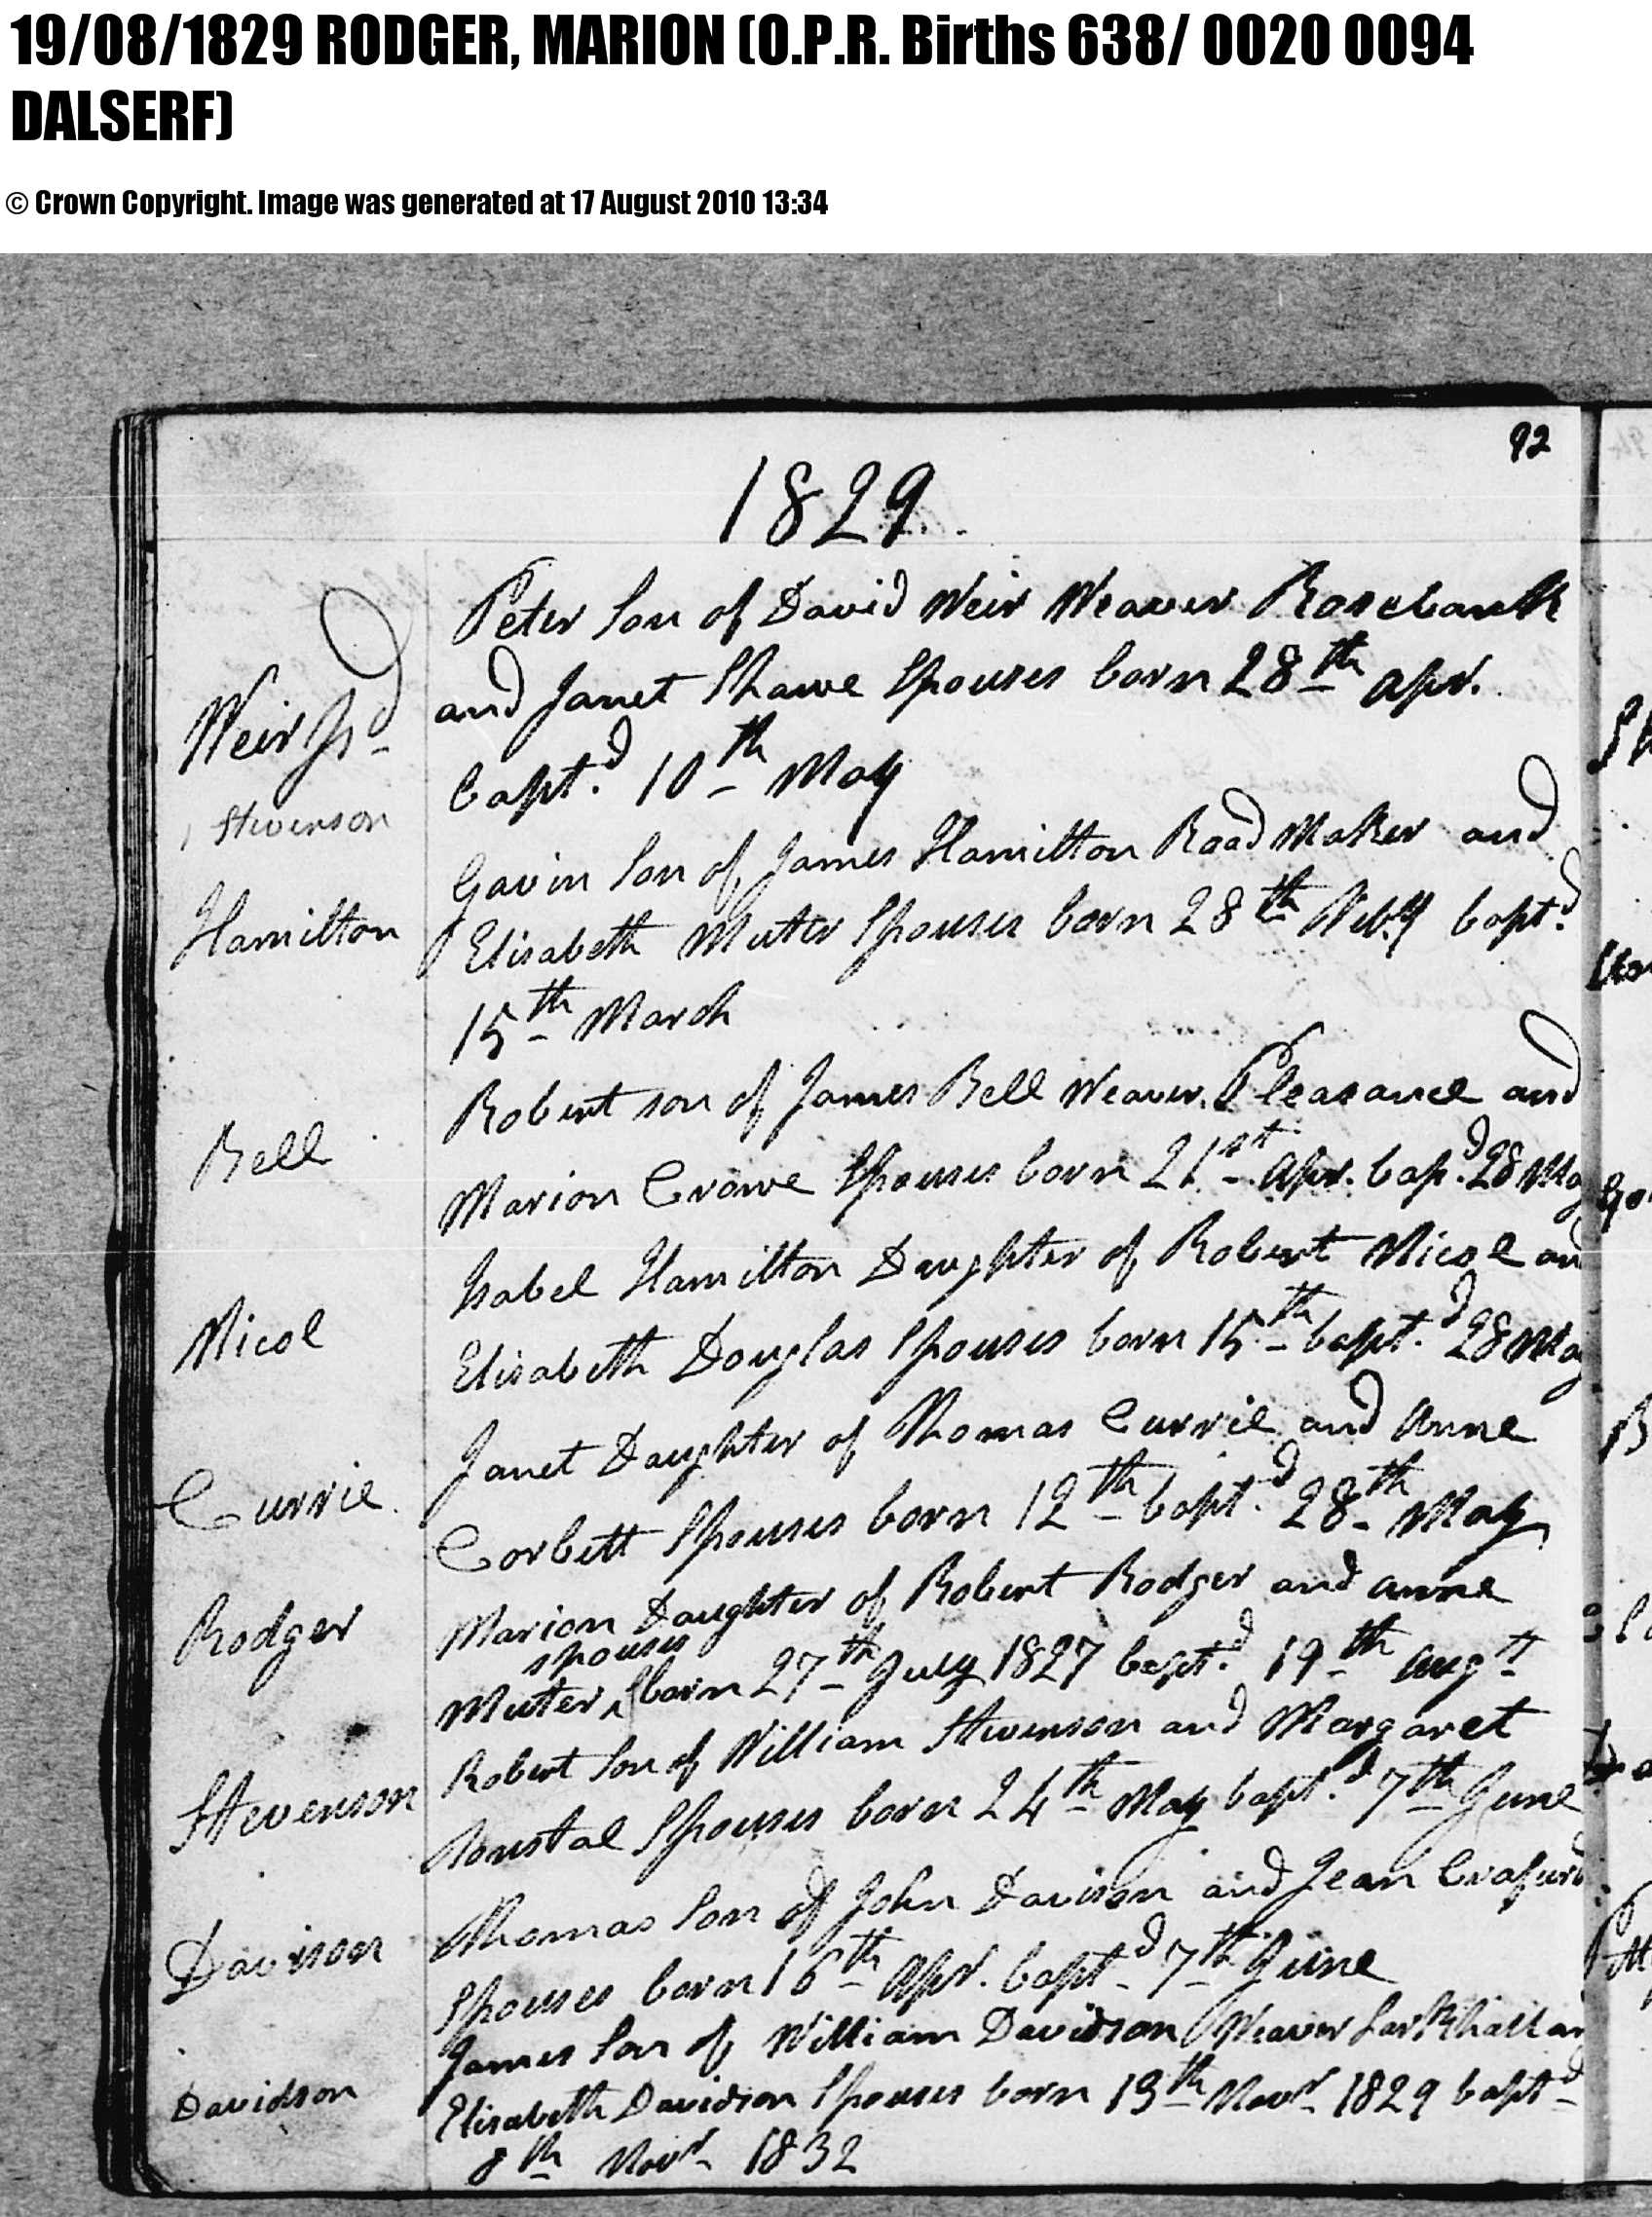 19/08/1829 RODGER, MARION (O.P.R. Births 638/ 0020 0094
DALSERF)
© Crown Copyright. Image was generated at 17 August 2010 13:34
92
1829
Peter Son of David Weir Weaver Rosebank
Weir
and Janet Shawe Spouses born 28th Apr.
baptd. 10th May
Stevenson
Gavin Son of James Hamilton Road Maker and
Hamilton
Elisabeth Muter Spouses born 28th Feby baptd.
15th March
Robert son of James Bell Weaver Pleasance and
Bell
Marion Crowe Spouses born 21st Apr. bapd. 28 May
Isabel Hamilton Daughter of Robert Nicol and
Nicol
Elisabeth Douglas Spouses born 15th baptd. 28 May
Janet Daughter of Thomas Currie and Anne
Currie
Corbett Spouses born 12th baptd. 28th May
Rodger
Marion Daughter of Robert Rodger and Anne
spouses
Muter born 27th July 1827 baptd. 19th Augt
Robert Son of William Stevenson and Margaret
Stevenson
Spouses born 24th May baptd. 7th June
Thomas Son of John Davison and Jean Crafurd
Davison
Spouses born 16th Apr. baptd 7th June
James Son of William Davidson Weaver Larkhall an
Davidson
Elisabeth Davidson Spouses born 13th Novr 1829 baptd
8th Novr 1832